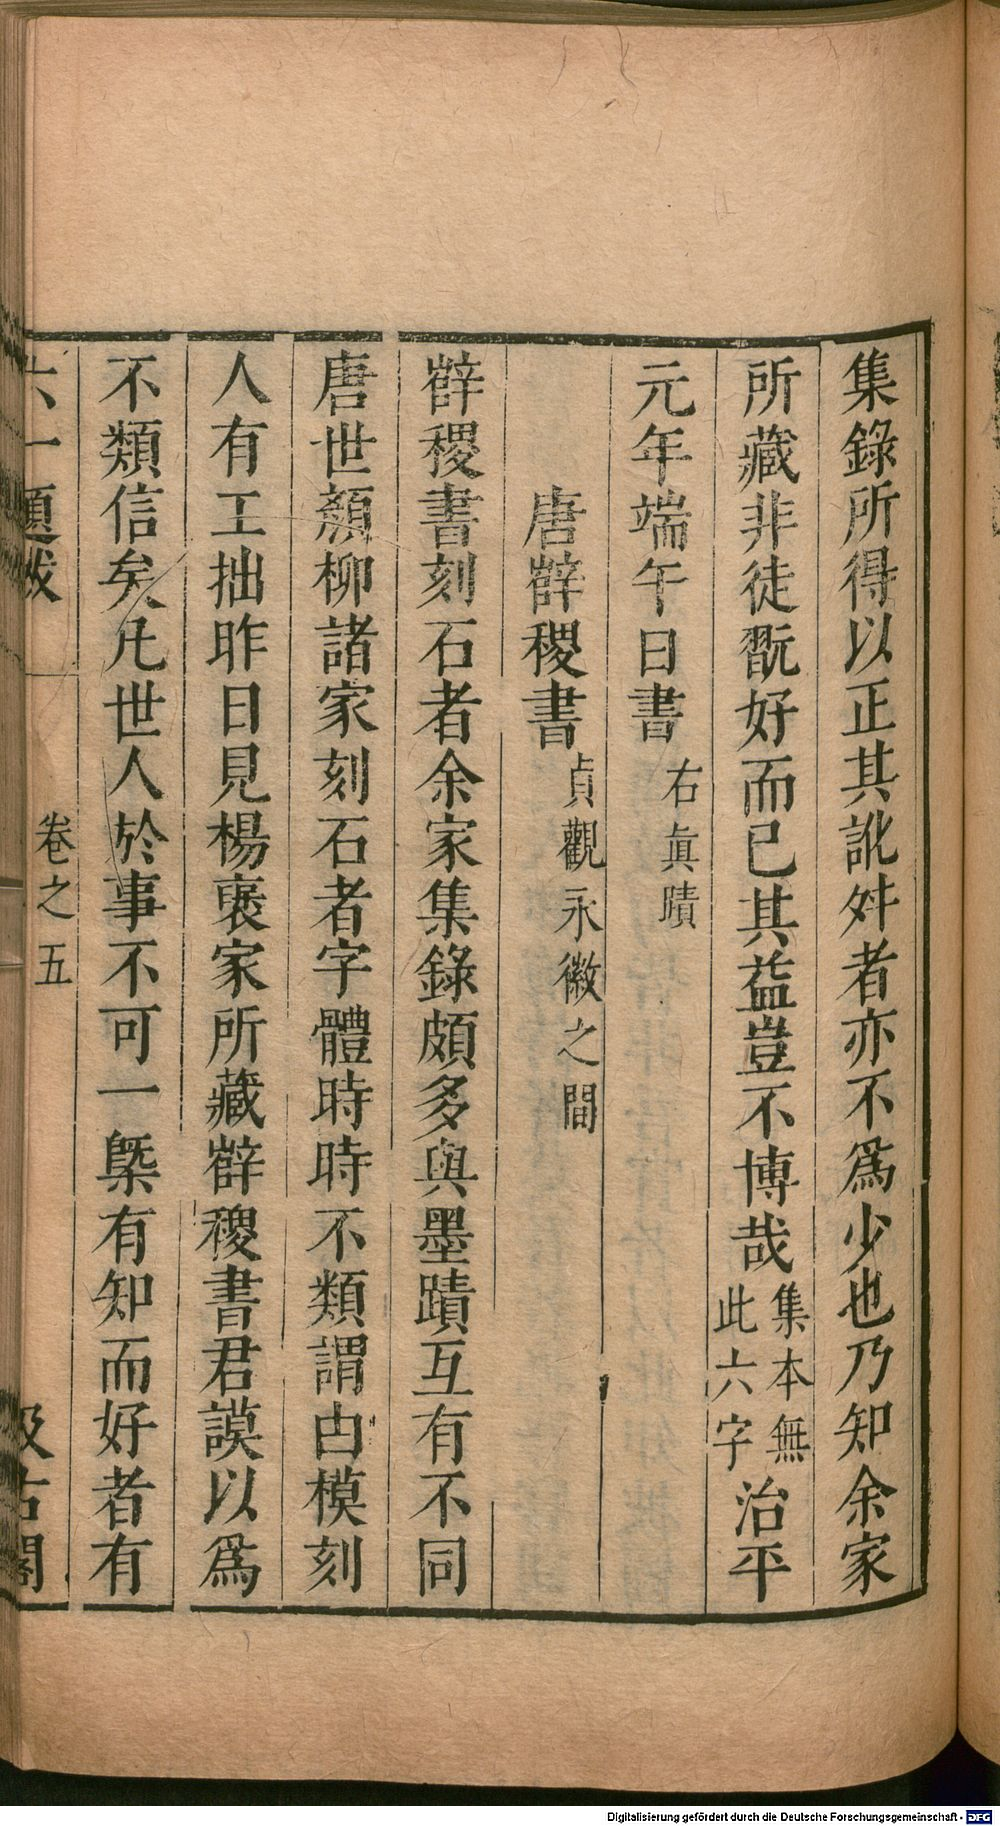 集錄所得以正其訛舛者亦不爲少也乃知余家
所藏非徒翫好而已其益豈不博哉集本無此六字治平
元年端午日書右眞蹟
唐薛稷書貞觀永徽之間
薛稷書刻石者余家集錄頗多與墨蹟互有不同
唐世顏柳諸家刻石者字體時時不類謂由模刻
人有工拙昨日見楊褒家所藏薛稷書君謨以爲
不類信矣凡世人於事不可一槩有知而好者有
六一題跋 卷之五 汲古閣
Digitalisierung gefördert durch die Deutsche Forschungsgemeinschaft - DFG